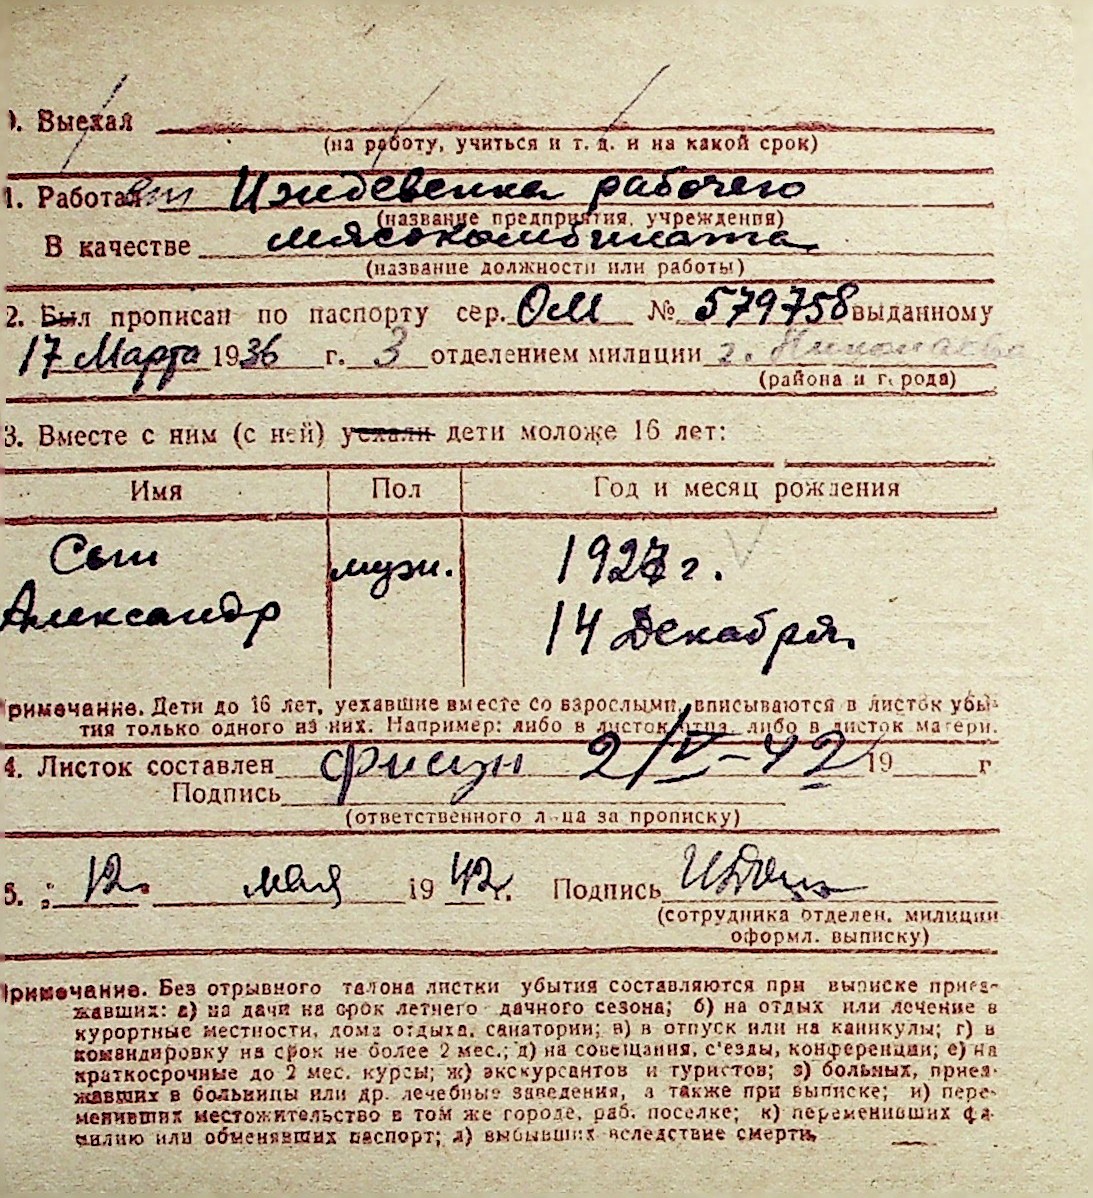 0. Выехал
(на работу, учиться и т. д. и на какой срок)
1. Работает Иждевенка рабочего
(название предприятия, учреждения)
В качестве мясокомбината
(название должности или работы)
2. Был прописан по паспорту сер. ОМ № 579758 выданному
17 Марта 1936 г. 3 отделением милиции г. Николаева
(района и города)
3. Вместе с ним (с ней) уехали дети моложе 16 лет:
Имя Пол Год и месяц рождения
Сын муж. 1927 г.
Александр 14 Декабря.
римечание. Дети до 16 лет, уехавшие вместе со взрослыми, вписываются в листок убы-
тия только одного из них. Например: либо в листок отца, либо в листок матери.
4. Листок составлен 2/V-42 19 г
Подпись
(ответственного лица за прописку)
5. 12 мая 1942 г. Подпись
(сотрудника отделен. милиции
оформл. выписку)
Примечание. Без отрывного талона листки убытия составляются при выписке приез-
жавших: а) на дачи на срок летнего дачного сезона; б) на отдых или лечение в
курортные местности, дома отдыха, санатории; в) в отпуск или на каникулы; г) в
командировку на срок не более 2 мес.; д) на совещания, с'езды, конференции; е) на
краткосрочные до 2 мес. курсы; ж) экскурсантов и туристов; з) больных, приез-
жавших в больницы или др. лечебные заведения, а также при выписке; и) пере-
менивших местожительство в том же городе, раб. поселке; к) переменивших фа-
милию или обменявших паспорт; л) выбывших вследствие смерти.